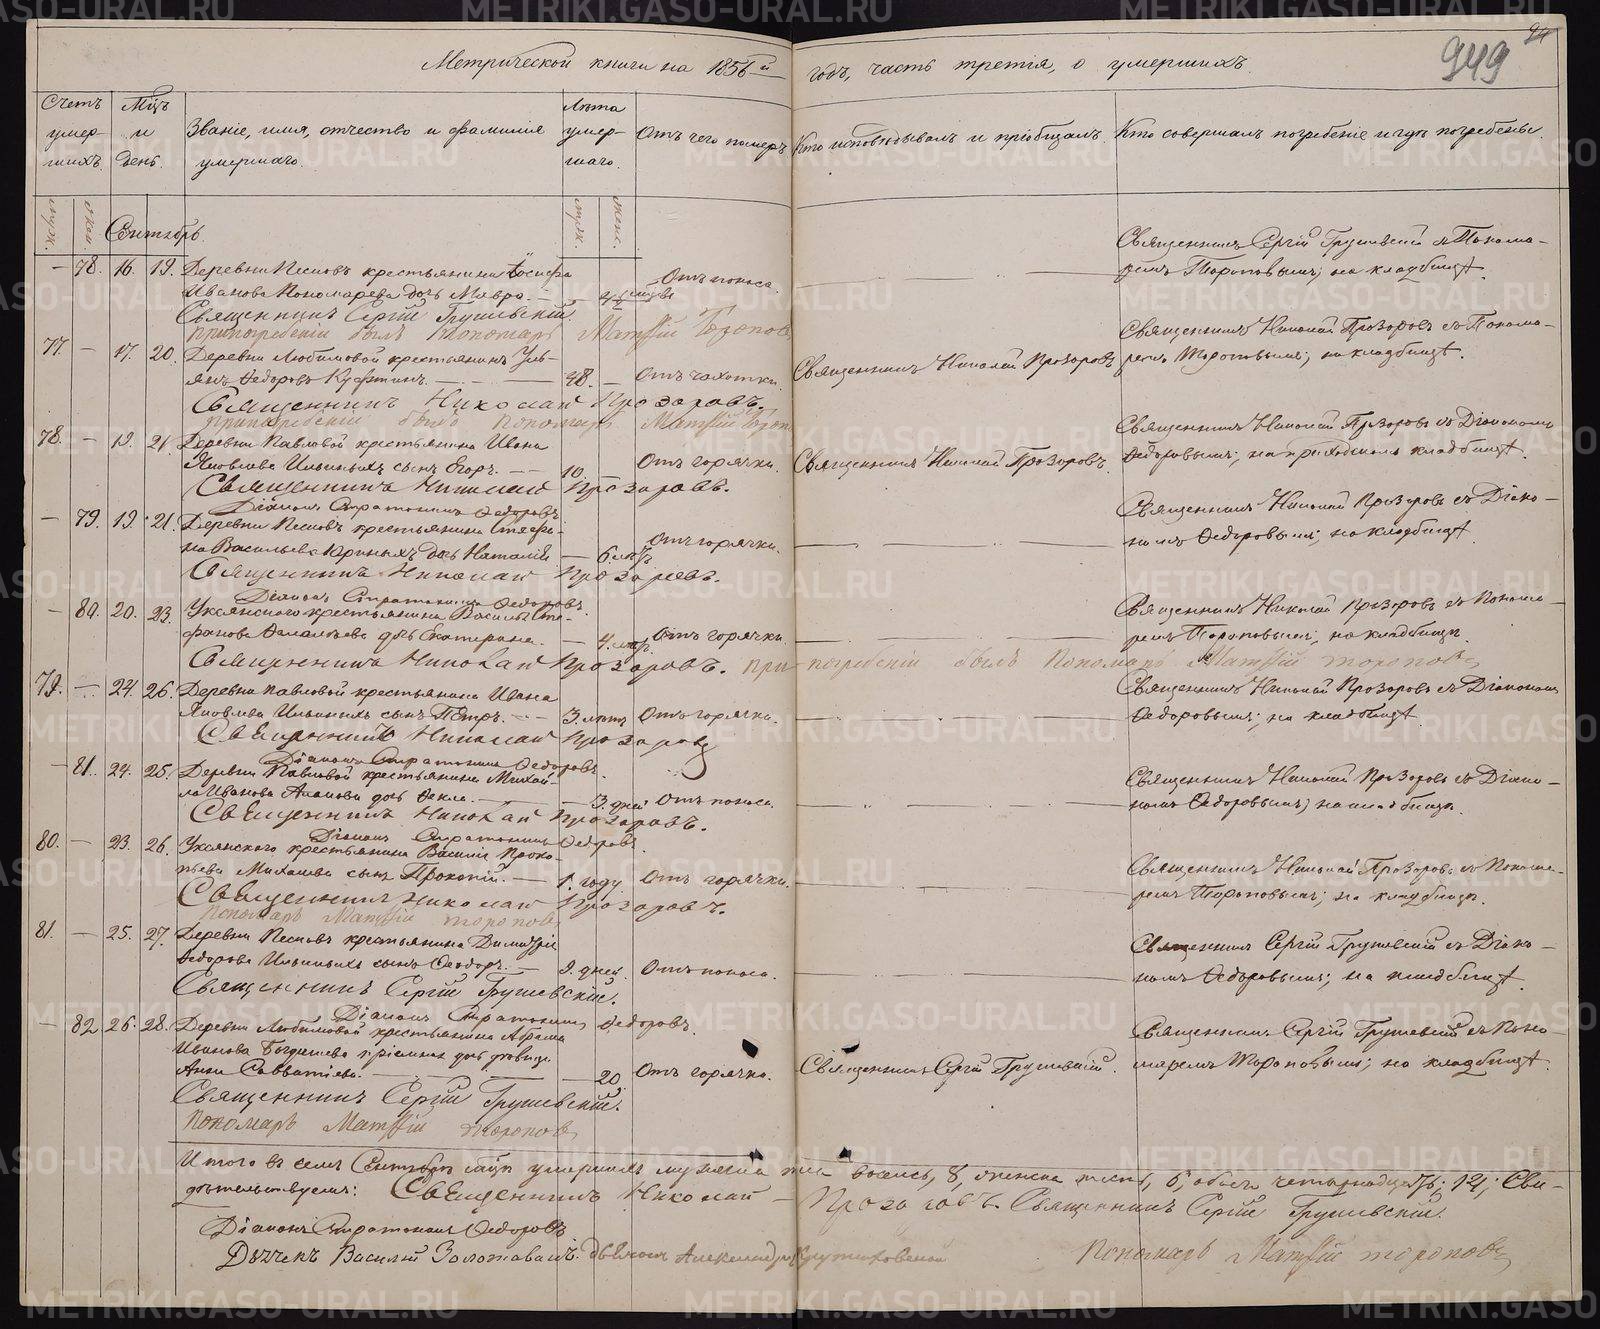 949
Метрической книги на 1856й годъ, часть третія, о умершихъ.
Счетъ умершихъ.
Мцъ и день.
Званіе, имя, отчество и фамилія умершаго.
Лѣта умершаго.
Отъ чего померъ
Кто исповѣдывалъ и пріобщалъ.
Кто совершалъ погребеніе и гдѣ погребены.
муж.
жен.
муж.
жен.
Сентябрь.
— 78. 16. 19. Деревни Песковъ крестьянина Іосифа
Иванова Пономарева дочь Мавра. —
Отъ поноса.
Священникъ Сергій Грушевскій съ Понома-
ремъ Тороповымъ; на кладбищѣ.
Священникъ Сергій Грушевскій.
при погребеніи былъ пономарь Матѳій Торопов
77. — 17. 20. Деревни Любимовой крестьянинъ
Ѳедоровъ
48. — Отъ чахотки.
Священникъ Николай Прозоровъ
Священникъ Николай Прозоровъ съ Понома-
ремъ Тороповымъ; на кладбищѣ.
Священникъ Николай Прозоровъ.
при погребеніи былъ пономарь Матѳій
78. — 19. 21. Деревни Павловой крестьянина Ивана
Яковлева Ильиныхъ сынъ Егоръ. — 10.
Отъ горячки.
Священникъ Николай Прозоровъ.
Священникъ Николай Прозоровъ съ Діакономъ
Ѳедоровымъ; на приходскомъ кладбищѣ.
Священникъ Николай Прозоровъ.
Діаконъ Стратоникъ Ѳедоровъ
— 79. 19. 21. Деревни Песковъ крестьянина Стефа-
на Васильева дочь Наталія —
Отъ горячки.
Священникъ Николай Прозоровъ съ Діако-
номъ Ѳедоровымъ; на кладбищѣ.
Священникъ Николай Прозоровъ.
Діаконъ Стратоникъ Ѳедоровъ.
— 80. 20. 23. Уксянскаго крестьянина Василья Сте-
фанова дочь Екатерина. —
Отъ горячки.
Священникъ Николай Прозоровъ съ Понома-
ремъ Тороповымъ; на кладбищѣ.
Священникъ Николай Прозоровъ. при погребеніи былъ Пономарь Матѳій Тороповъ
79. — 24. 26. Деревни Павловой крестьянина Ивана
Яковлева Ильиныхъ сынъ Петръ. — 3. лѣтъ Отъ горячки.
Священникъ Николай Прозоровъ съ Діакономъ
Ѳедоровымъ; на кладбищѣ.
Священникъ Николай Прозоровъ
Діаконъ Стратоникъ Ѳедоровъ.
— 81. 24. 25. Деревни Павловой крестьянина Михай-
ла Иванова дочь Ѳекла. — 3. дней Отъ поноса.
Священникъ Николай Прозоровъ съ Діако-
номъ Ѳедоровымъ; на кладбищѣ.
Священникъ Николай Прозоровъ.
Діаконъ Стратоникъ Ѳедоровъ.
80. — 23. 26. Уксянскаго крестьянина Василія Проко-
пьева сынъ Прокопій. — 1. году. Отъ горячки.
Священникъ Николай Прозоровъ съ Понома-
ремъ Тороповымъ; на кладбищѣ.
Священникъ Николай Прозоровъ.
Пономарь Матѳій Тороповъ
81. — 25. 27. Деревни Песковъ крестьянина Димитрія
Ѳедорова Ильиныхъ сынъ Ѳеодоръ. — 9. дней. Отъ поноса.
Священникъ Сергій Грушевскій съ Діако-
номъ Ѳедоровымъ; на кладбищѣ.
Священникъ Сергій Грушевскій.
Діаконъ Стратоникъ Ѳедоровъ.
— 82. 26. 28. Деревни Любимовой крестьянина
Иванова дочь дѣвица
Анна Савватіева. — 20. Отъ горячки.
Священникъ Сергій Грушевскій.
Священникъ Сергій Грушевскій съ Поно-
маремъ Тороповымъ; на кладбищѣ.
Священникъ Сергій Грушевскій.
Пономарь Матѳій Тороповъ
Итого въ семъ Сентябрѣ мцѣ умершихъ мужеска пола восемь, 8, женска шесть, 6, обоего четырнадцать; 14; Сви-
дѣтельствуемъ: Священникъ Николай Прозоровъ. Священникъ Сергій Грушевскій.
Діаконъ Стратоникъ Ѳедоровъ
Дьячекъ Василій Золотавинъ. Дьячекъ Александръ
Пономарь Матѳій Тороповъ
METRIKI.GASO-URAL.RU